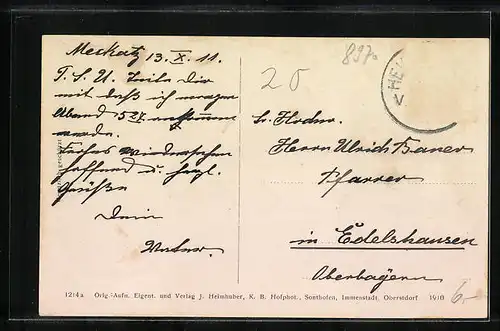 Meckatz 13. X. 11.
T. S. U. Teile Dir
mit daß ich morgen
Abend 5 27 ankommen
werde.
Frohes Wiedersehen
hoffend u. herzl.
Grüße
Dein
Vater.
897
20
HEI
Sr. Hochw.
Herrn Ulrich Bauer
Pfarrer
in Edelshausen
Oberbayern
6.-
1214a Orig.-Aufn. Eigent. und Verlag J. Heimhuber, K. B. Hofphot., Sonthofen, Immenstadt, Oberstdorf 1910